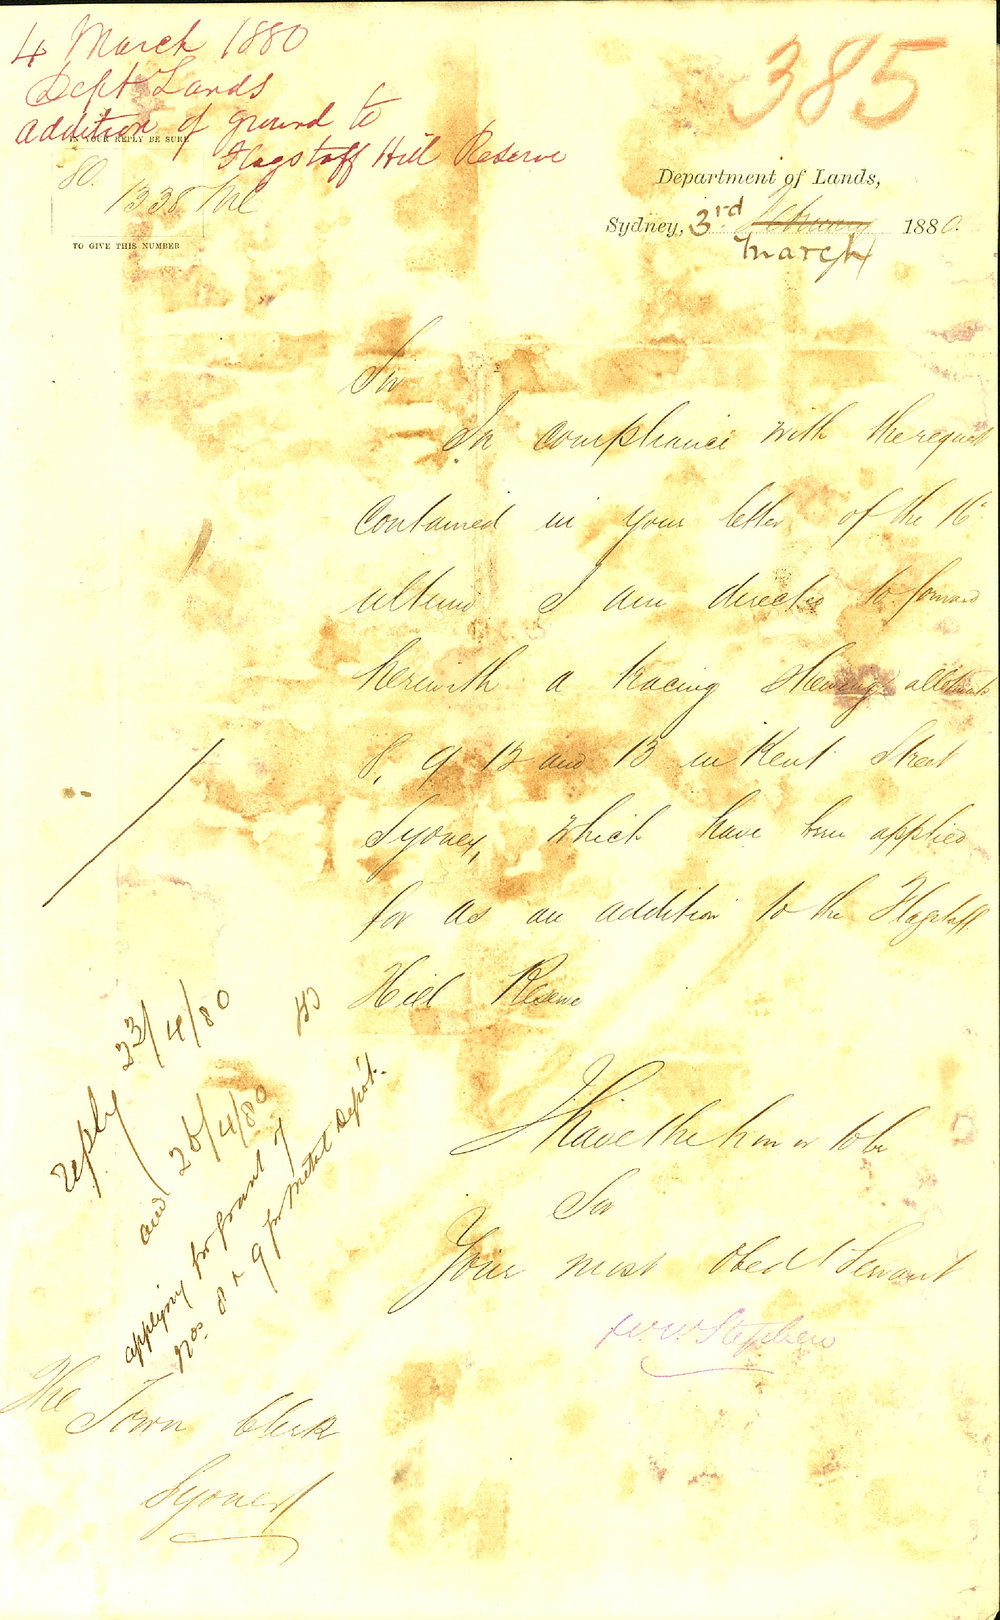 4 March 1880
Dept Lands
addition of ground to
Flagstaff Hill Reserve
385
IN YOUR REPLY BE SURE
80.
1338 Mil
TO GIVE THIS NUMBER
Department of Lands,
Sydney, 3rd February 1880.
March
Sir
In compliance with the request
contained in your letter of the 16th
ultimo I am directed to forward
herewith a tracing shewing allotments
8, 9 12 and 13 in Kent Street
Sydney, which have been applied
for as an addition to the Flagstaff
Hill Reserve
I have the honor to be
Sir
Your most Obedt Servant
W Stephen
reply 23/4/80
and 26/4/80
applying for grant of
Nos. 8 & 9 for Metal Depôt.
The
Town Clerk
Sydney